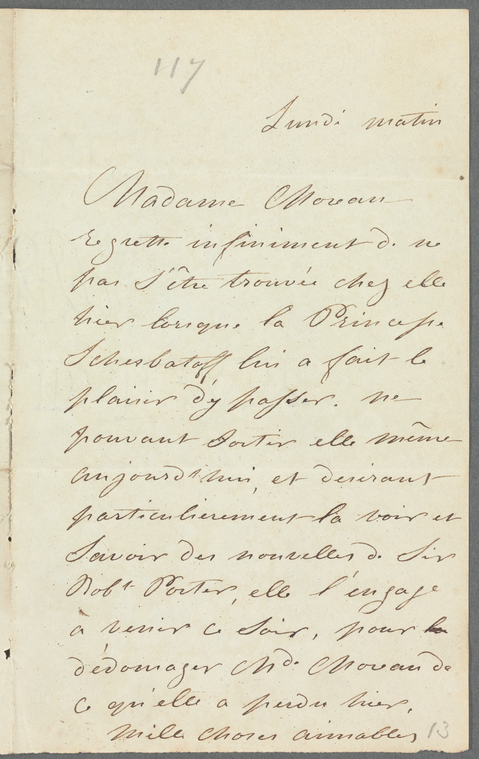 117
Lundi matin
Madame Moreau
regrette infiniment de ne
pas s'être trouvée chez elle
hier lorsque la Princesse
Scherbatoff lui a fait le
plaisir d'y passer. ne
pouvant sortir elle même
aujourd'hui, et desirant
particulierement la voir et
savoir des nouvelles de Sir
Robt Porter, elle l'engage
a venir ce soir, pour la
dédomager Mde Moreau de
ce qu'elle a perdu hier.
Mille choses aimables
13